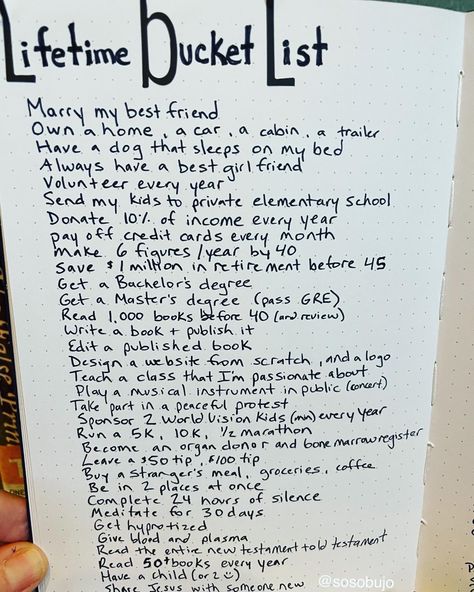 Lifetime Bucket List
Marry my best friend
Own a home, a car, a cabin, a trailer
Have a dog that sleeps on my bed
Always have a best girl friend
Volunteer every year
Send my kids to private elementary school
Donate 10% of income every year
pay off credit cards every month
Make 6 figures/year by 40
Save $1 million in retirement before 45
Get a Bachelor's degree
Get a Master's degree (pass GRE)
Read 1,000 books before 40 (and review)
Write a book + publish it
Edit a published book
Design a website from scratch, and a logo
Teach a class that I'm passionate about
Play a musical instrument in public (concert)
Take part in a peaceful protest
Sponsor 2 World Vision Kids (min) every year
Run a 5K, 10K, 1/2 marathon
Become an organ donor and bone marrow register
Leave a $50 tip, $100 tip
Buy a stranger's meal, groceries, coffee
Be in 2 places at once
Complete 24 hours of silence
Meditate for 30 days
Get hypnotized
Give blood and plasma
Read the entire new testament + old testament
Read 50+ books every year
Have a child (or 2 ☺)
Share Jesus with someone new
@sosobujo